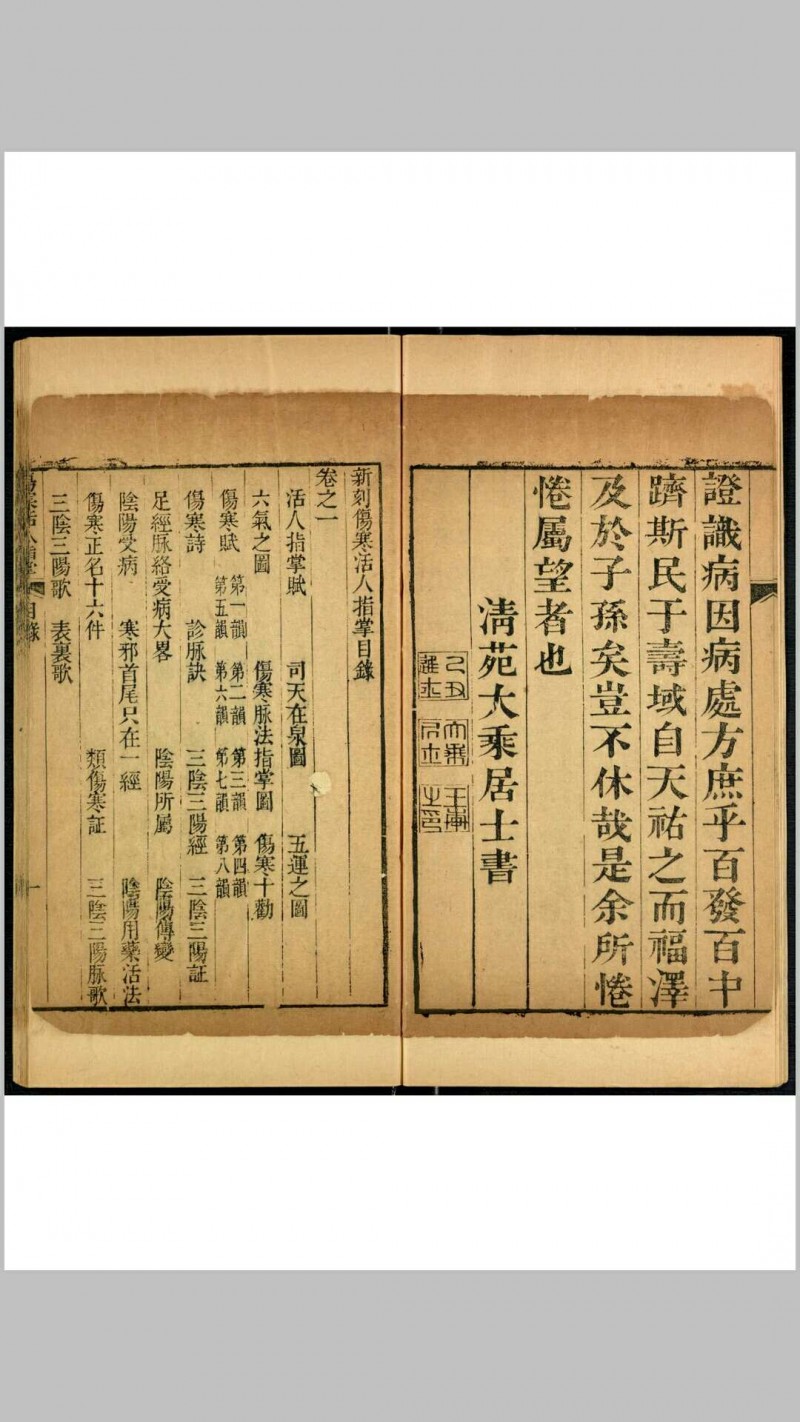 證識病因病處方庶乎百發百中
躋斯民于壽域自天祐之而福澤
及於子孫矣豈不休哉是余所惓
惓屬望者也
清苑大乘居士書
新刻傷寒活人指掌目錄
卷之一
活人指掌賦 司天在泉圖 五運之圖
六氣之圖 傷寒脉法指掌圖 傷寒十勸
傷寒賦 第一韻 第二韻 第三韻 第四韻
第五韻 第六韻 第七韻 第八韻
傷寒詩 診脉訣 三陰三陽經 三陰三陽証
足經脉絡受病大畧 陰陽所屬 陰陽傳變
陰陽受病 寒邪首尾只在一經 陰陽用藥活法
傷寒正名十六件 類傷寒証 三陰三陽脉歌
三陰三陽歌 表裏歌
傷寒活人指掌 目錄 一